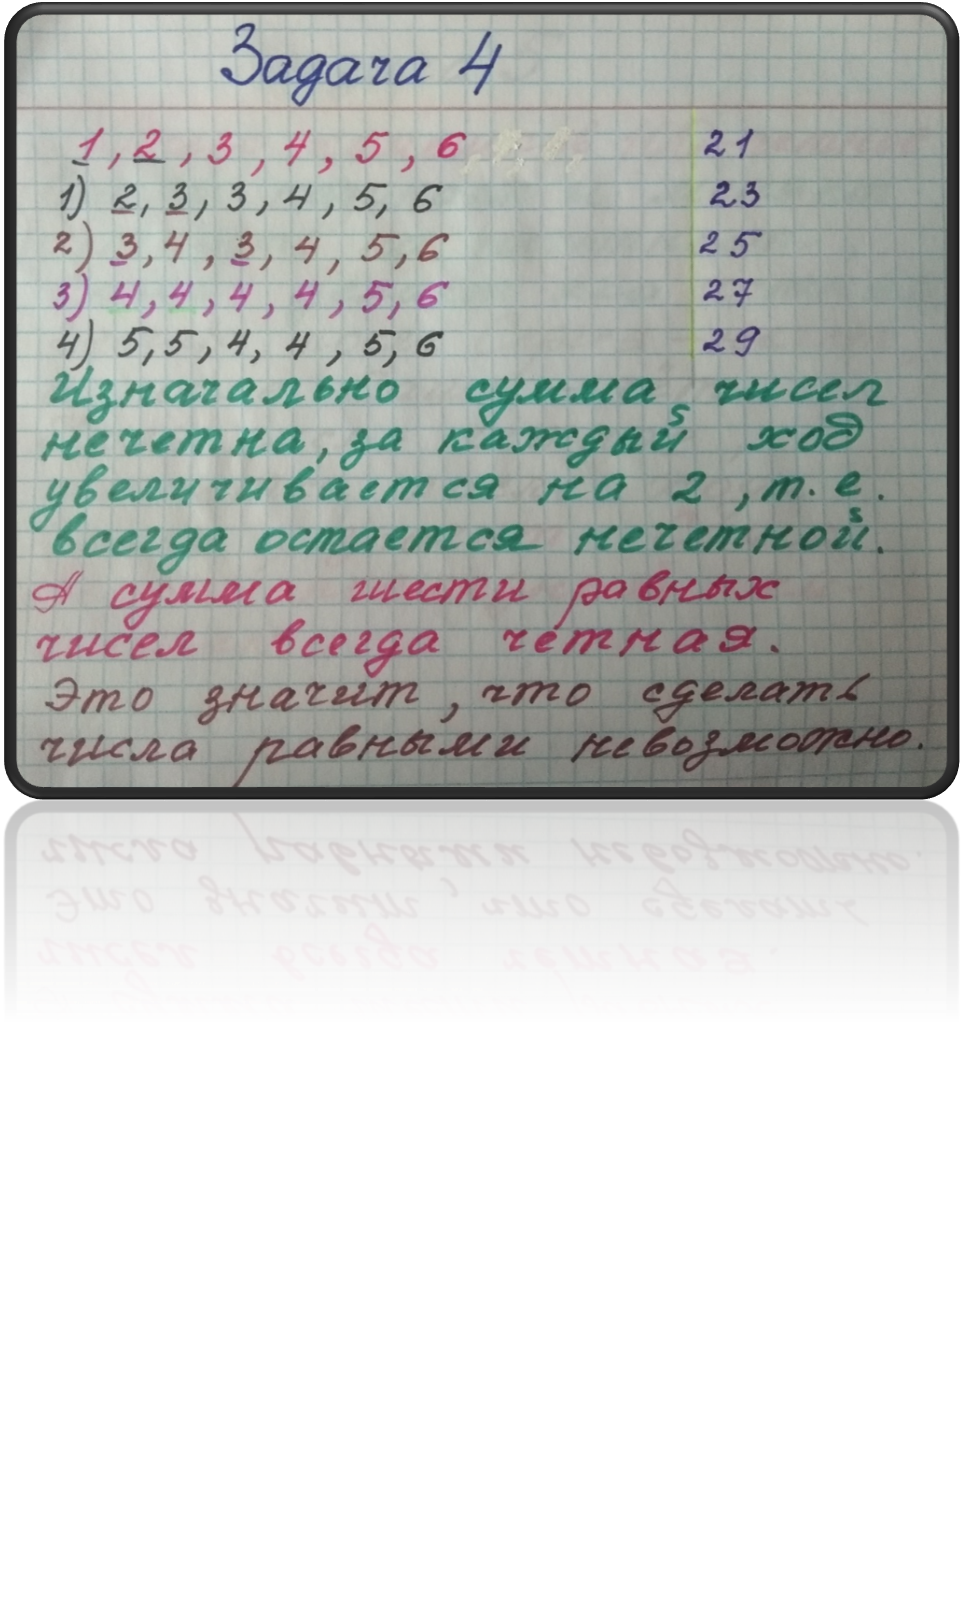 Задача 4
1, 2, 3, 4, 5, 6 21
1) 2, 3, 3, 4, 5, 6 23
2) 3, 4, 3, 4, 5, 6 25
3) 4, 4, 4, 4, 5, 6 27
4) 5, 5, 4, 4, 5, 6 29
Изначально сумма чисел
нечетна, за каждый ход
увеличивается на 2, т.е.
всегда остается нечетной.
А сумма шести равных
чисел всегда чётная.
Это значит, что сделать
числа равными невозможно.